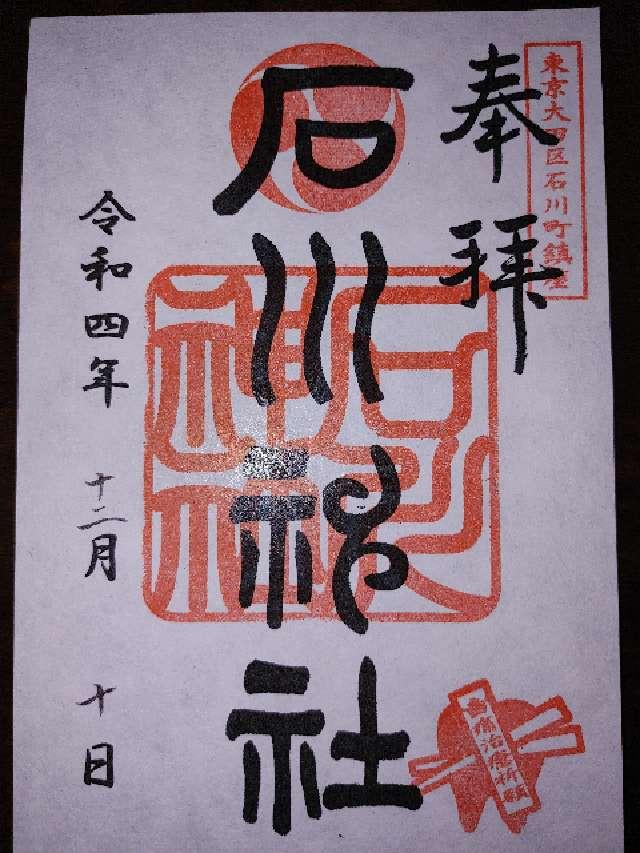 東京大田区石川町鎮座
奉拝
石川神社
令和四年 十二月 十日
歯痛治癒祈願